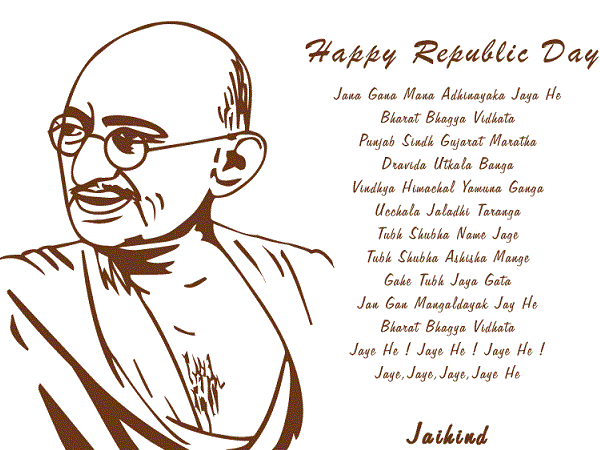 Happy Republic Day
Jana Gana Mana Adhinayaka Jaya He
Bharat Bhagya Vidhata
Punjab Sindh Gujarat Maratha
Dravida Utkala Banga
Vindhya Himachal Yamuna Ganga
Ucchala Jaladhi Taranga
Tubh Shubha Name Jage
Tubh Shubha Ashisha Mange
Gahe Tubh Jaya Gata
Jan Gan Mangaldayak Jay He
Bharat Bhagya Vidhata
Jaye He ! Jaye He ! Jaye He !
Jaye,Jaye,Jaye,Jaye He
Jaihind